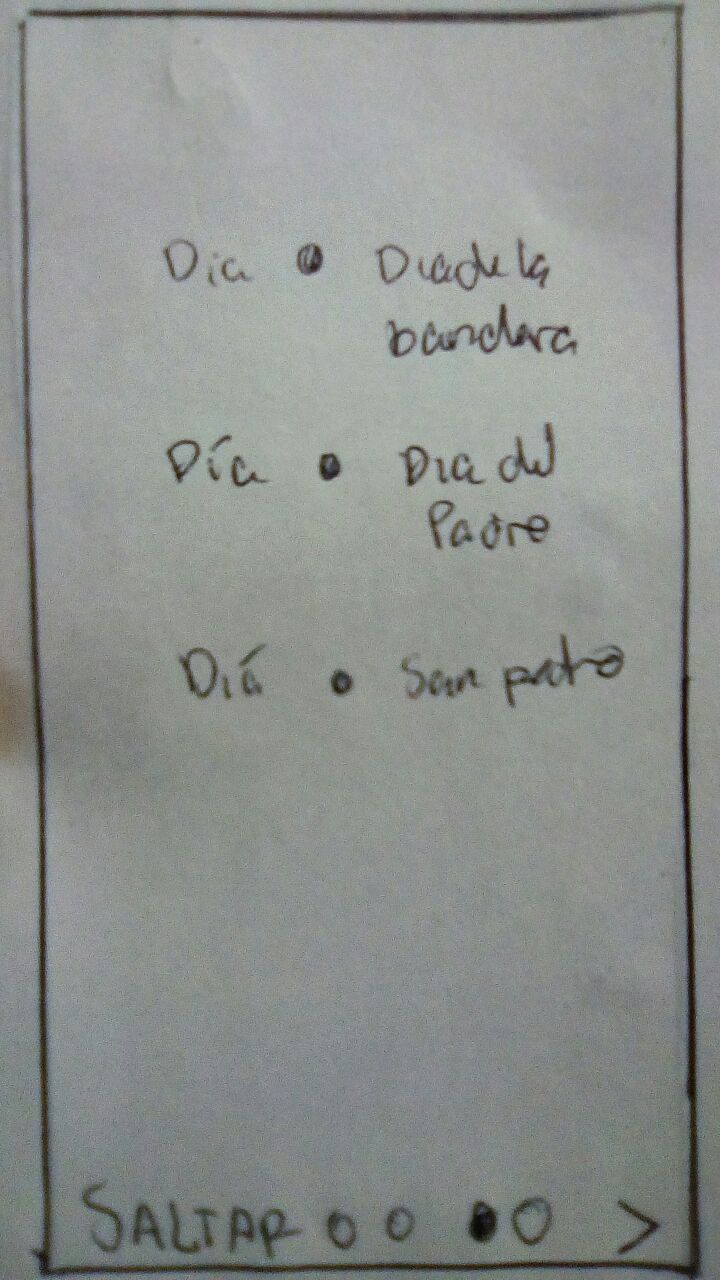 Dia Dia de la
bandera
Día Dia del
Padre
Diá San pedro
SALTAR >